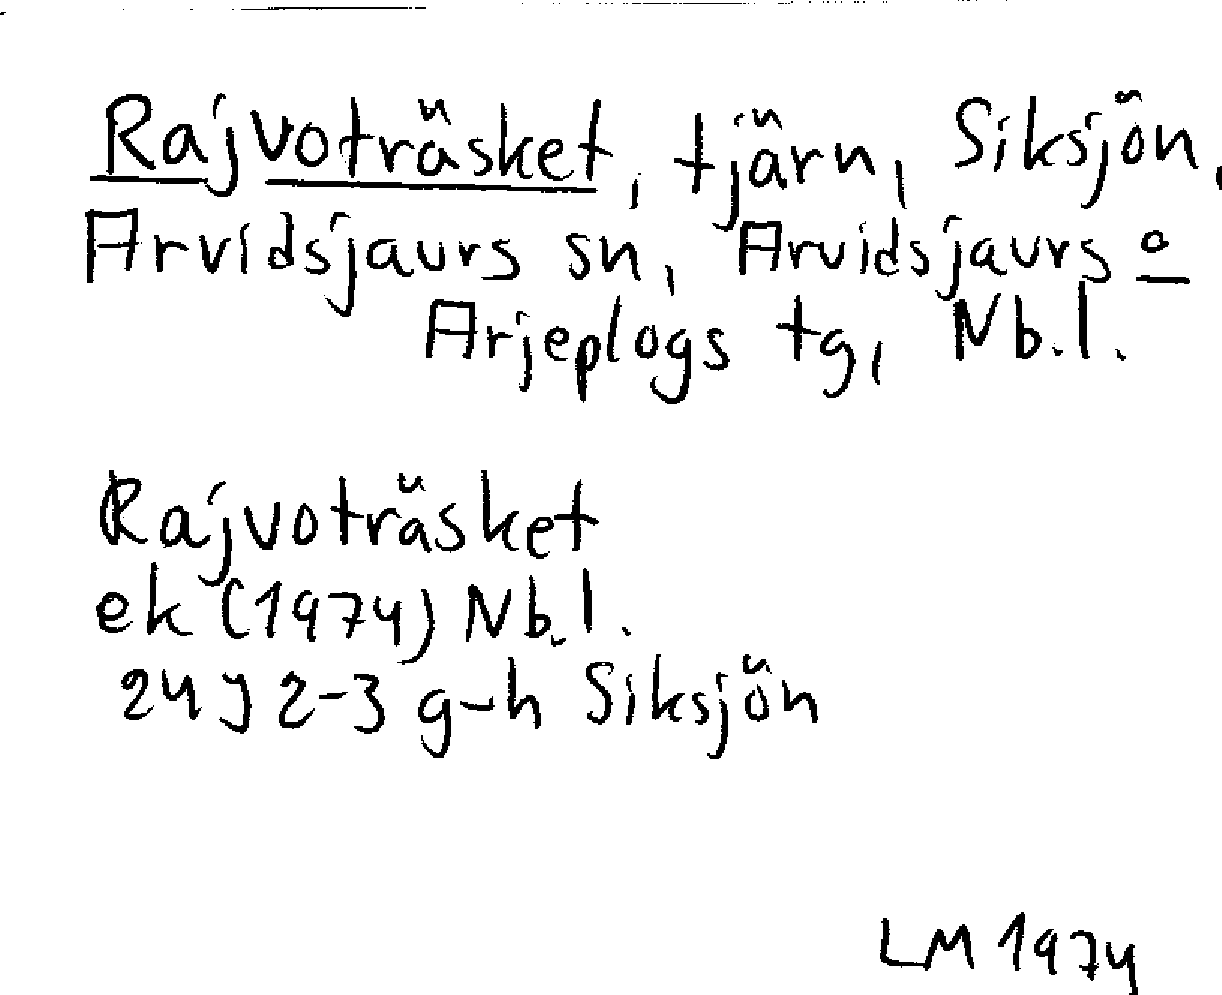 Rajvoträsket, tjärn, Siksjön,
Arvidsjaurs sn, Arvidsjaurs o
Arjeplogs tg, Nb.l.
Rajvoträsket
ek (1974) Nb.l.
24J 2-3 g-h Siksjön
LM 1974